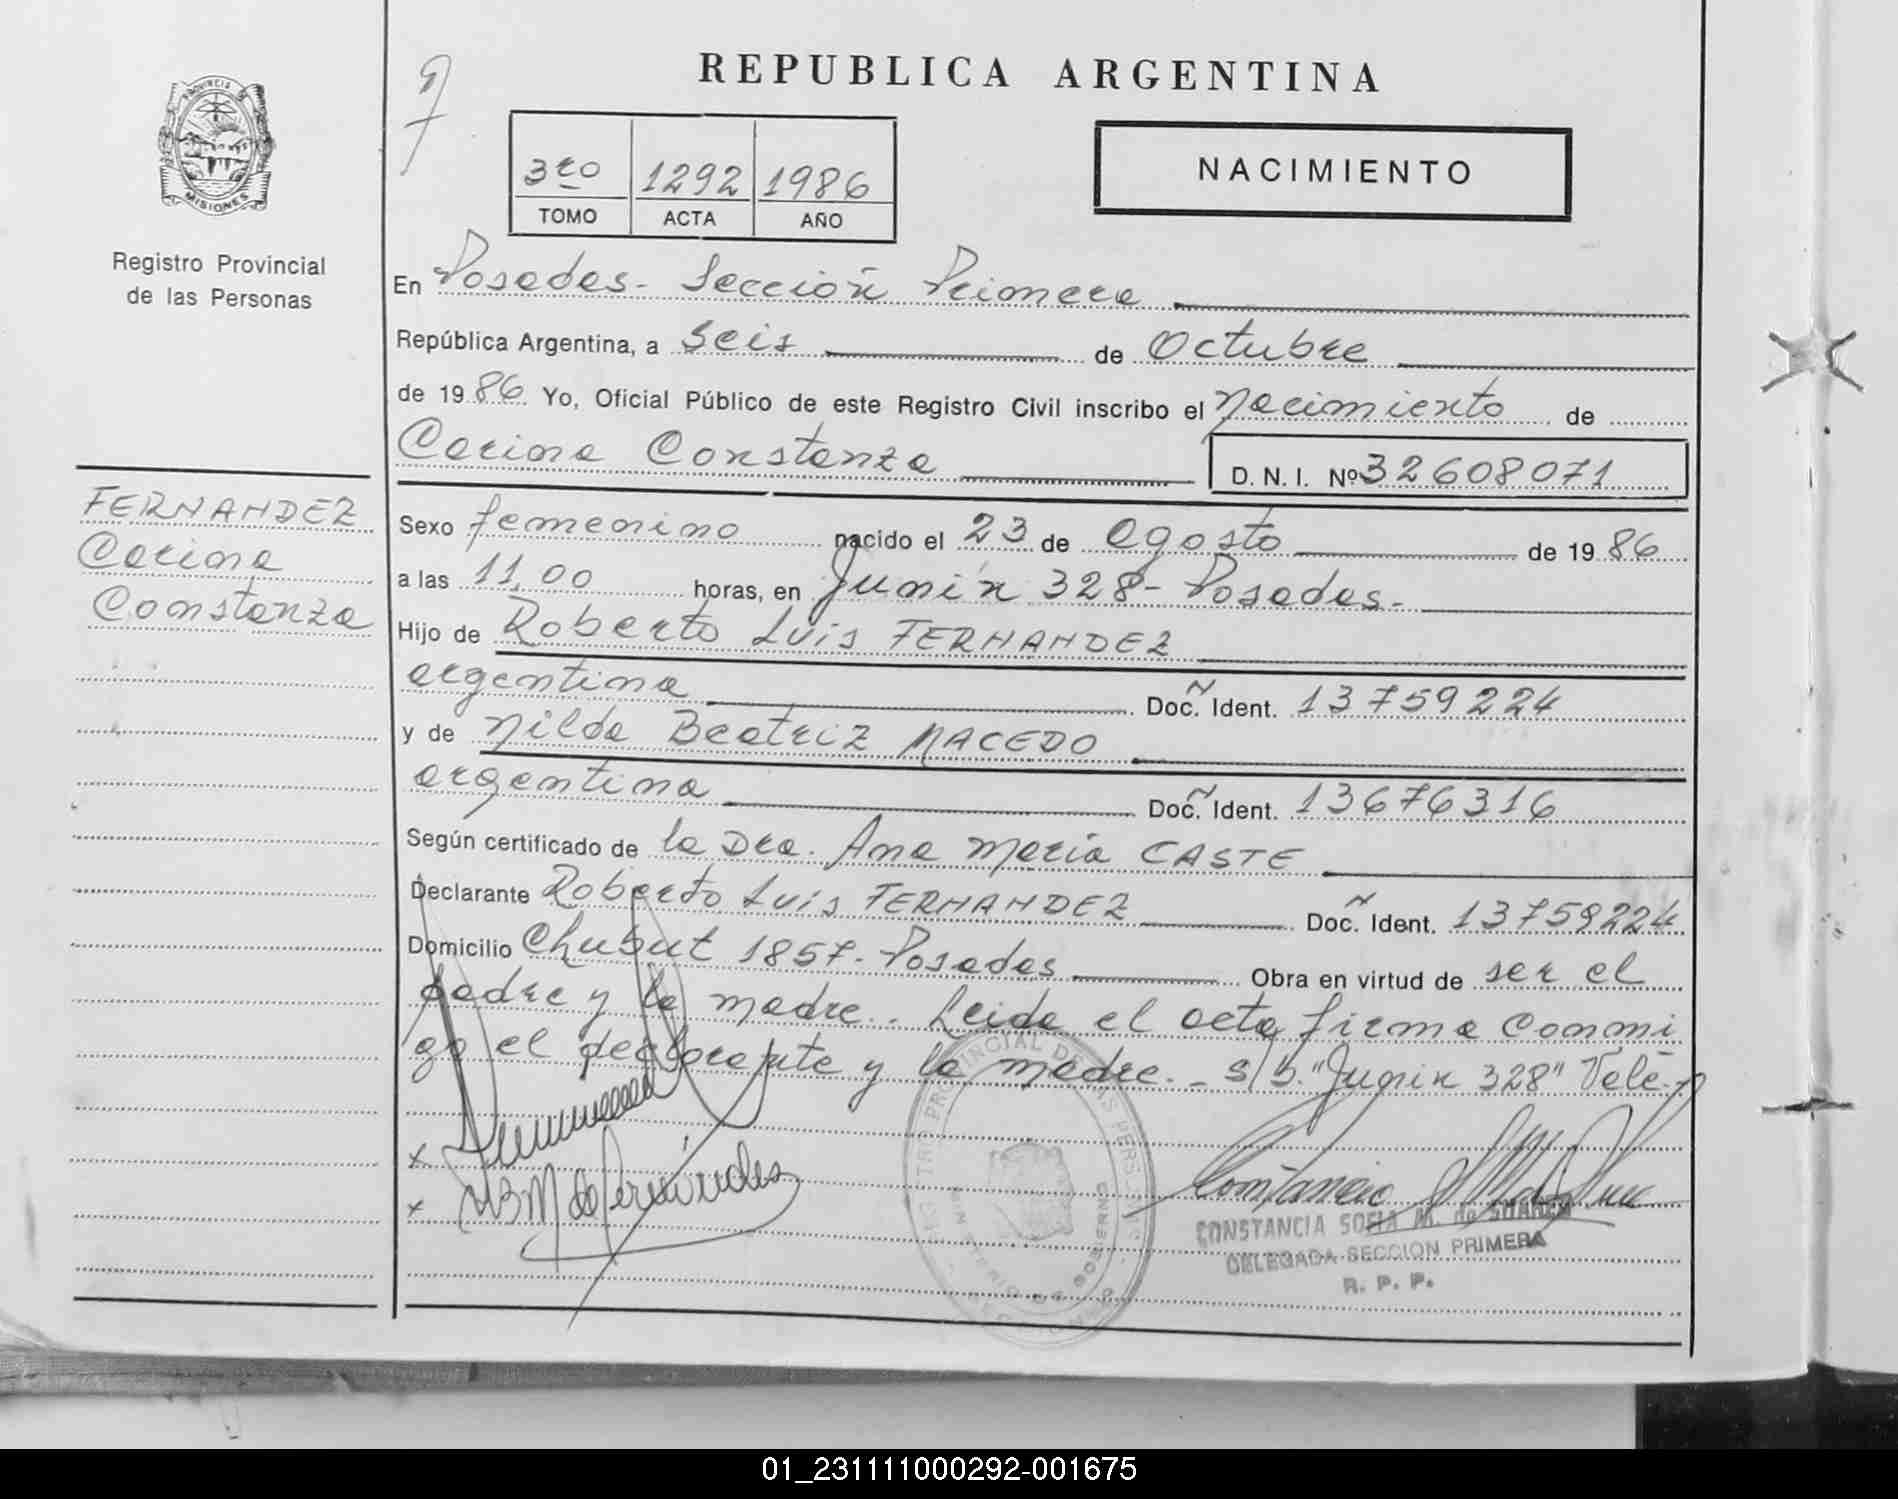 REPUBLICA ARGENTINA
PROVINCIA DE
MISIONES
Registro Provincial
de las Personas
3ro 1292 1986
TOMO ACTA AÑO
NACIMIENTO
En Posadas- Sección Primera
República Argentina, a seis de Octubre
de 1986 Yo, Oficial Público de este Registro Civil inscribo el Nacimiento de
Carina Constanza D. N. I. Nº 32608071
FERNANDEZ
Carina
Constanza
Sexo femenino nacido el 23 de Agosto de 1986
a las 11,00 horas, en Junín 328- Posadas-
Hijo de Roberto Luis FERNANDEZ
argentina Doc. Ident. 13759224
y de Nilda Beatriz MACEDO
argentina Doc. Ident. 13676316
Según certificado de la Dra. Ana María CASTE
Declarante Roberto Luis FERNANDEZ Doc. Ident. 13759224
Domicilio Chubut 1857- Posadas Obra en virtud de ser el
padre y la madre.. Leida el acta firma conmi
go el declarante y la madre.- s/b. "Junín 328" Vale.-
x
x
CONSTANCIA SOFIA M. de SUAREZ
DELEGADA SECCION PRIMERA
R. P. P.
01_231111000292-001675